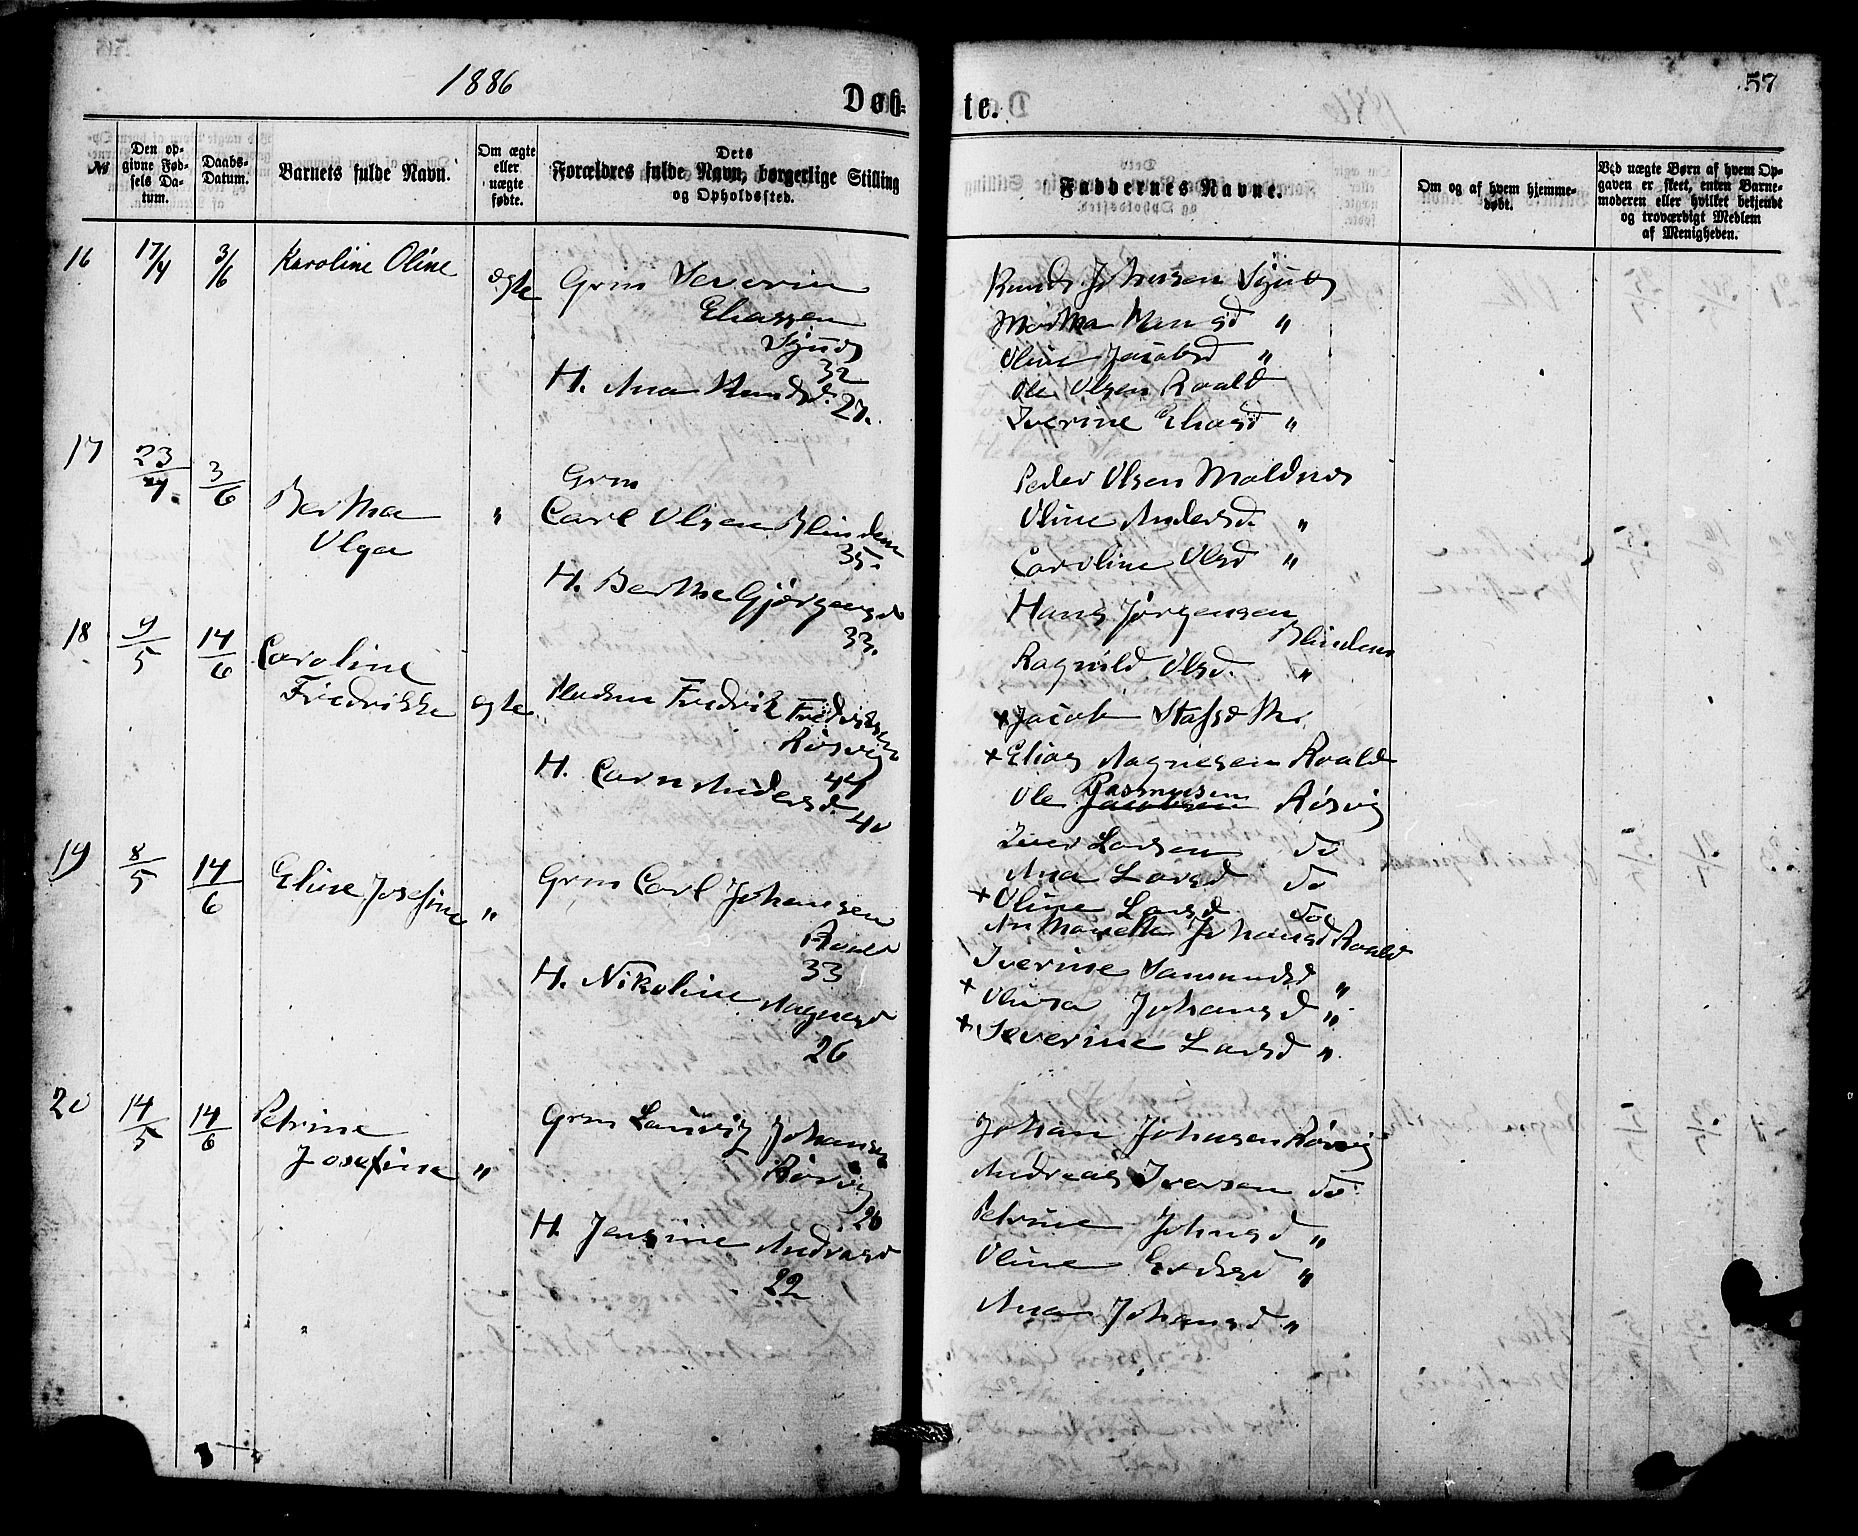 1886
Døb-
te.
57
№
Den op-
givne Fød-
sels Da-
tum.
Daabs-
Datum.
Barnets fulde Navn.
Om ægte
eller
uægte
fødte.
Dets
Forældres fulde Navn, borgerlige Stilling
og Opholdssted.
Faddernes Navne.
Om og af hvem hjemme-
døbt.
Ved uægte Børn af hvem Op-
gaven er skeet, enten Barne-
moderen eller hvilket bekjendt
og troværdigt Medlem
af Menigheden.
16 17/4 3/6 Karoline Oline ægte Grm Severin
Eliassen
32
H. Ana Knudsd. 27.
Knud Johnsen
Martha Hansd "
Oline Jacobsd "
Ole Olsen Roald
Iverine Eliasd "
17 23/4. 3/6 Bertha
Olga
" Grm
Carl Olsen Blindem
35.
H. Berthe Gjørgensd
33.
Peder Olsen Moldnes
Oline Andersd. "
Caroline Olsd "
Hans Jørgensen
Blindem
Ragnild Olsd. "
18 4/5 14/6 Caroline
Fredrikke ægte Fredrik Fredriksen
Røsvig
44
H. Carn Andersd.
40
+ Jacob
+ Elias Magnesen Roald
Ole Rasmusen Røsvig
Iver Larsen do
Ana Larsd do
+ Oline Larsd do
19 8/5 14/6 Eline Josefine " Grm Carl Johansen
Roald
33
H. Nikoline Magnesd
26
An Johansd Roald
Iverine Samundsd "
+ Johansd "
+ Severine Larsd "
20 14/5 14/6 Petrine
Josefine " Grm Laurvig Johansen
Røsvig
26
H. Jensine Andreasd
22
Johan Johnsen Røsvig
Andreas Iversen do
Petrine Johnsd "
Oline "
Ana Johansd "